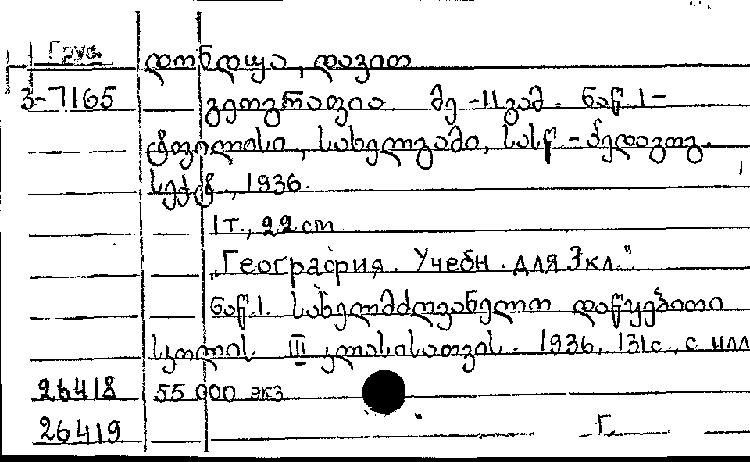 Груз.
დონდუა, დავით
3-7165 გეოგრაფია. მე-11 გამ. ნაწ. 1-
ტფილისი, სახელგამი, სასწ.-პედაგოგ.
სექტ., 1936.
1 т., 22 cm
„География. Учебн. для 3 кл."
ნაწ. 1. სახელმძღვანელო დაწყებითი
სკოლის III კლასისათვის. - 1936, 131 с., с илл
26418 55 000 экз
26419 Г.